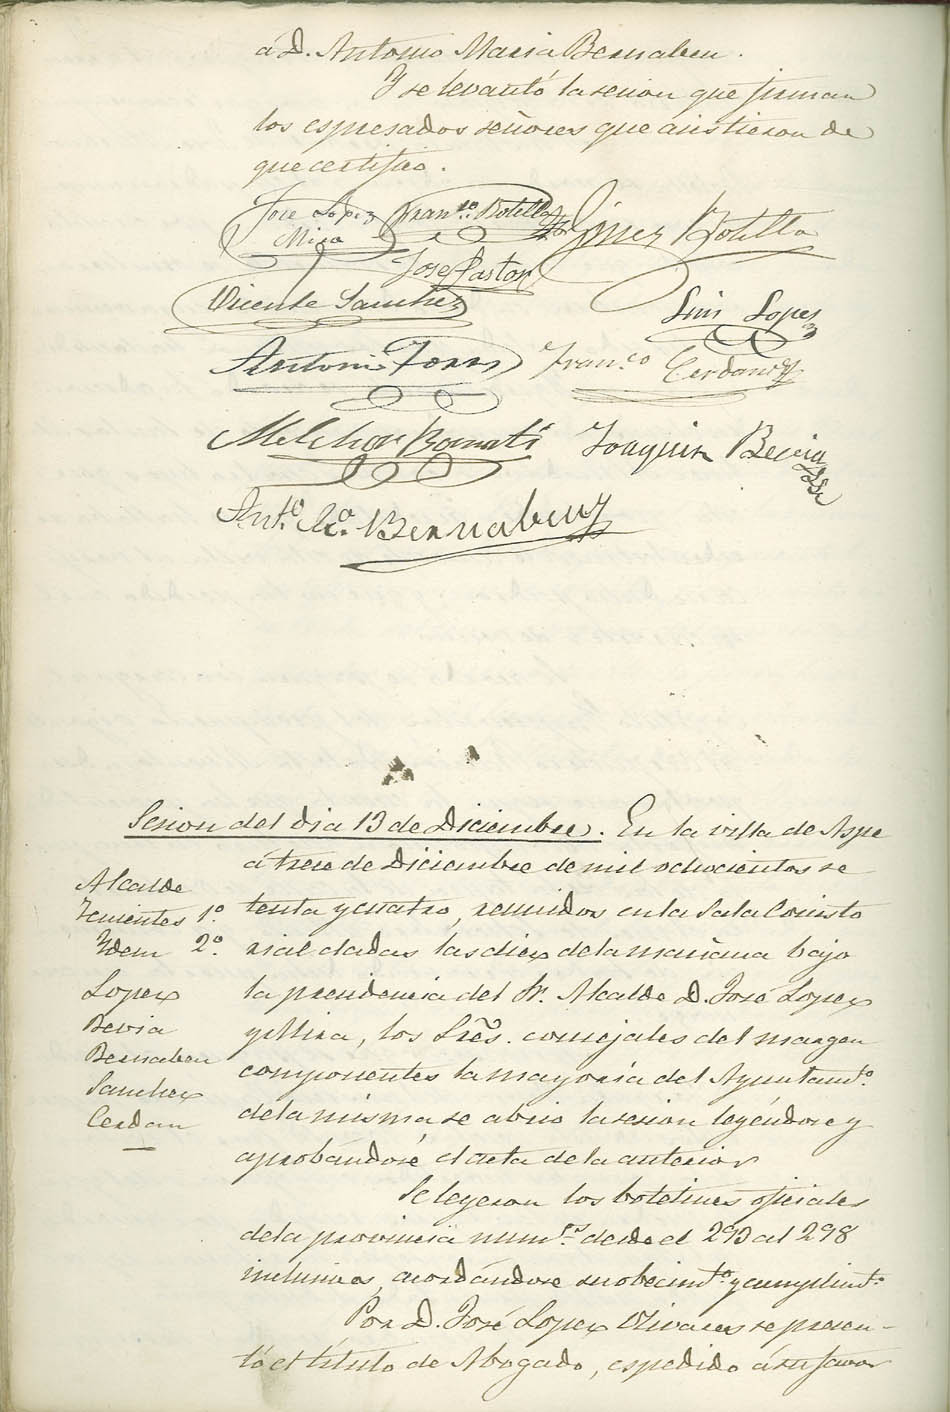 á D. Antonio Maria Bernabeu.
Y se levantó la sesion que firman
los espresados señores que asistieron de
que certifico.
Jose Lopez Franco. Botella Gines Botella
Mira
Jose Pastor
Vicente Sanchez Luis Lopez
Antonio Torres Franco Cerdan
Melchor Bonmati Joaquin Bevia
Anto. Ma. Bernabeu
Sesion del dia 13 de Diciembre. En la villa de Aspe
á trece de Diciembre de mil ochocientos se
tenta y cuatro, reunidos en la Sala Consisto
rial dadas las diez de la mañana bajo
la presidencia del Sr. Alcalde D. José Lopez
y Mira, los Sres. consejales del margen
componentes la mayoria del Ayuntamto.
de la misma se abrio la sesion leyéndose y
aprobándose el acta de la anterior
Alcalde
Tenientes 1º.
Idem 2º.
Lopez
Bevia
Bernabeu
Sanchez
Cerdan
Se leyeron los boletines oficiales
de la provincia numrs. desde el 293 al 298
inclusives, acordándose su obecimto. y cumplimto.
Por D. José Lopez Olivares se presen-
tó el título de Abogado, espedido á su favor